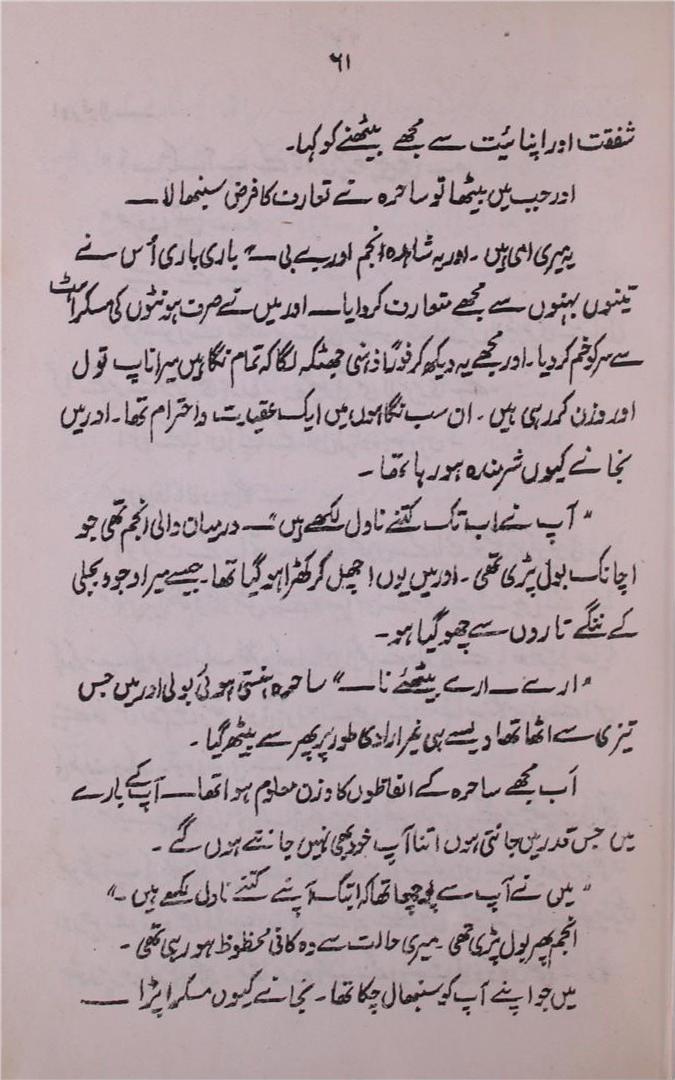 ۶۱
شفقت اور اپنائیت سے مجھے بیٹھنے کو کہا۔
اور جب میں بیٹھا تو ساحرہ نے تعارف کا فرض سنبھالا —
یہ میری امی ہیں۔ اور یہ شاہدہ انجم اور بے بی —" باری باری اُس نے
تینوں بہنوں سے مجھے متعارف کروایا — اور میں نے صرف ہونٹوں کی مسکراہٹ
سے سر کو خم کر دیا۔ اور مجھے یہ دیکھ کر فوراً ذہنی جھٹکہ لگا کہ تمام نگاہیں میرا ناپ تول
اور وزن کر رہی ہیں۔ ان سب نگاہوں میں ایک عقیدت و احترام تھا۔ اور میں
نجانے کیوں شرمندہ ہو رہا تھا۔
"آپ نے اب تک کتنے ناول لکھے ہیں" — درمیان والی انجم تھی جو
اچانک بول پڑی تھی۔ اور میں یوں اچھل کر کھڑا ہو گیا تھا۔ جیسے میرا وجود بجلی
کے ننگے تاروں سے چھو گیا ہو۔
"ارے — ارے بیٹھئے نا —" ساحرہ ہنستی ہوئی بولی اور میں جس
تیزی سے اٹھا تھا ویسے ہی غیر ارادی طور پر پھر سے بیٹھ گیا۔
اَب مجھے ساحرہ کے الفاظوں کا وزن معلوم ہوا تھا — آپ کے بارے
میں جس قدر میں جانتی ہوں اتنا آپ خود بھی نہیں جانتے ہوں گے۔
"میں نے آپ سے پوچھا تھا کہ ابتک آپنے کتنے ناول لکھے ہیں۔"
انجم پھر بول پڑی تھی۔ میری حالت سے وہ کافی محظوظ ہو رہی تھی۔
میں جو اپنے آپ کو سنبھال چکا تھا۔ نجانے کیوں مسکرا پڑا —